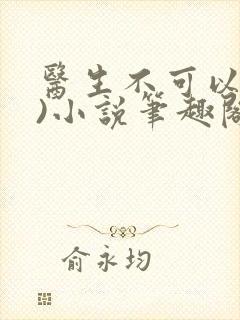 醫生不可以
)小說筆趣閣
俞永均